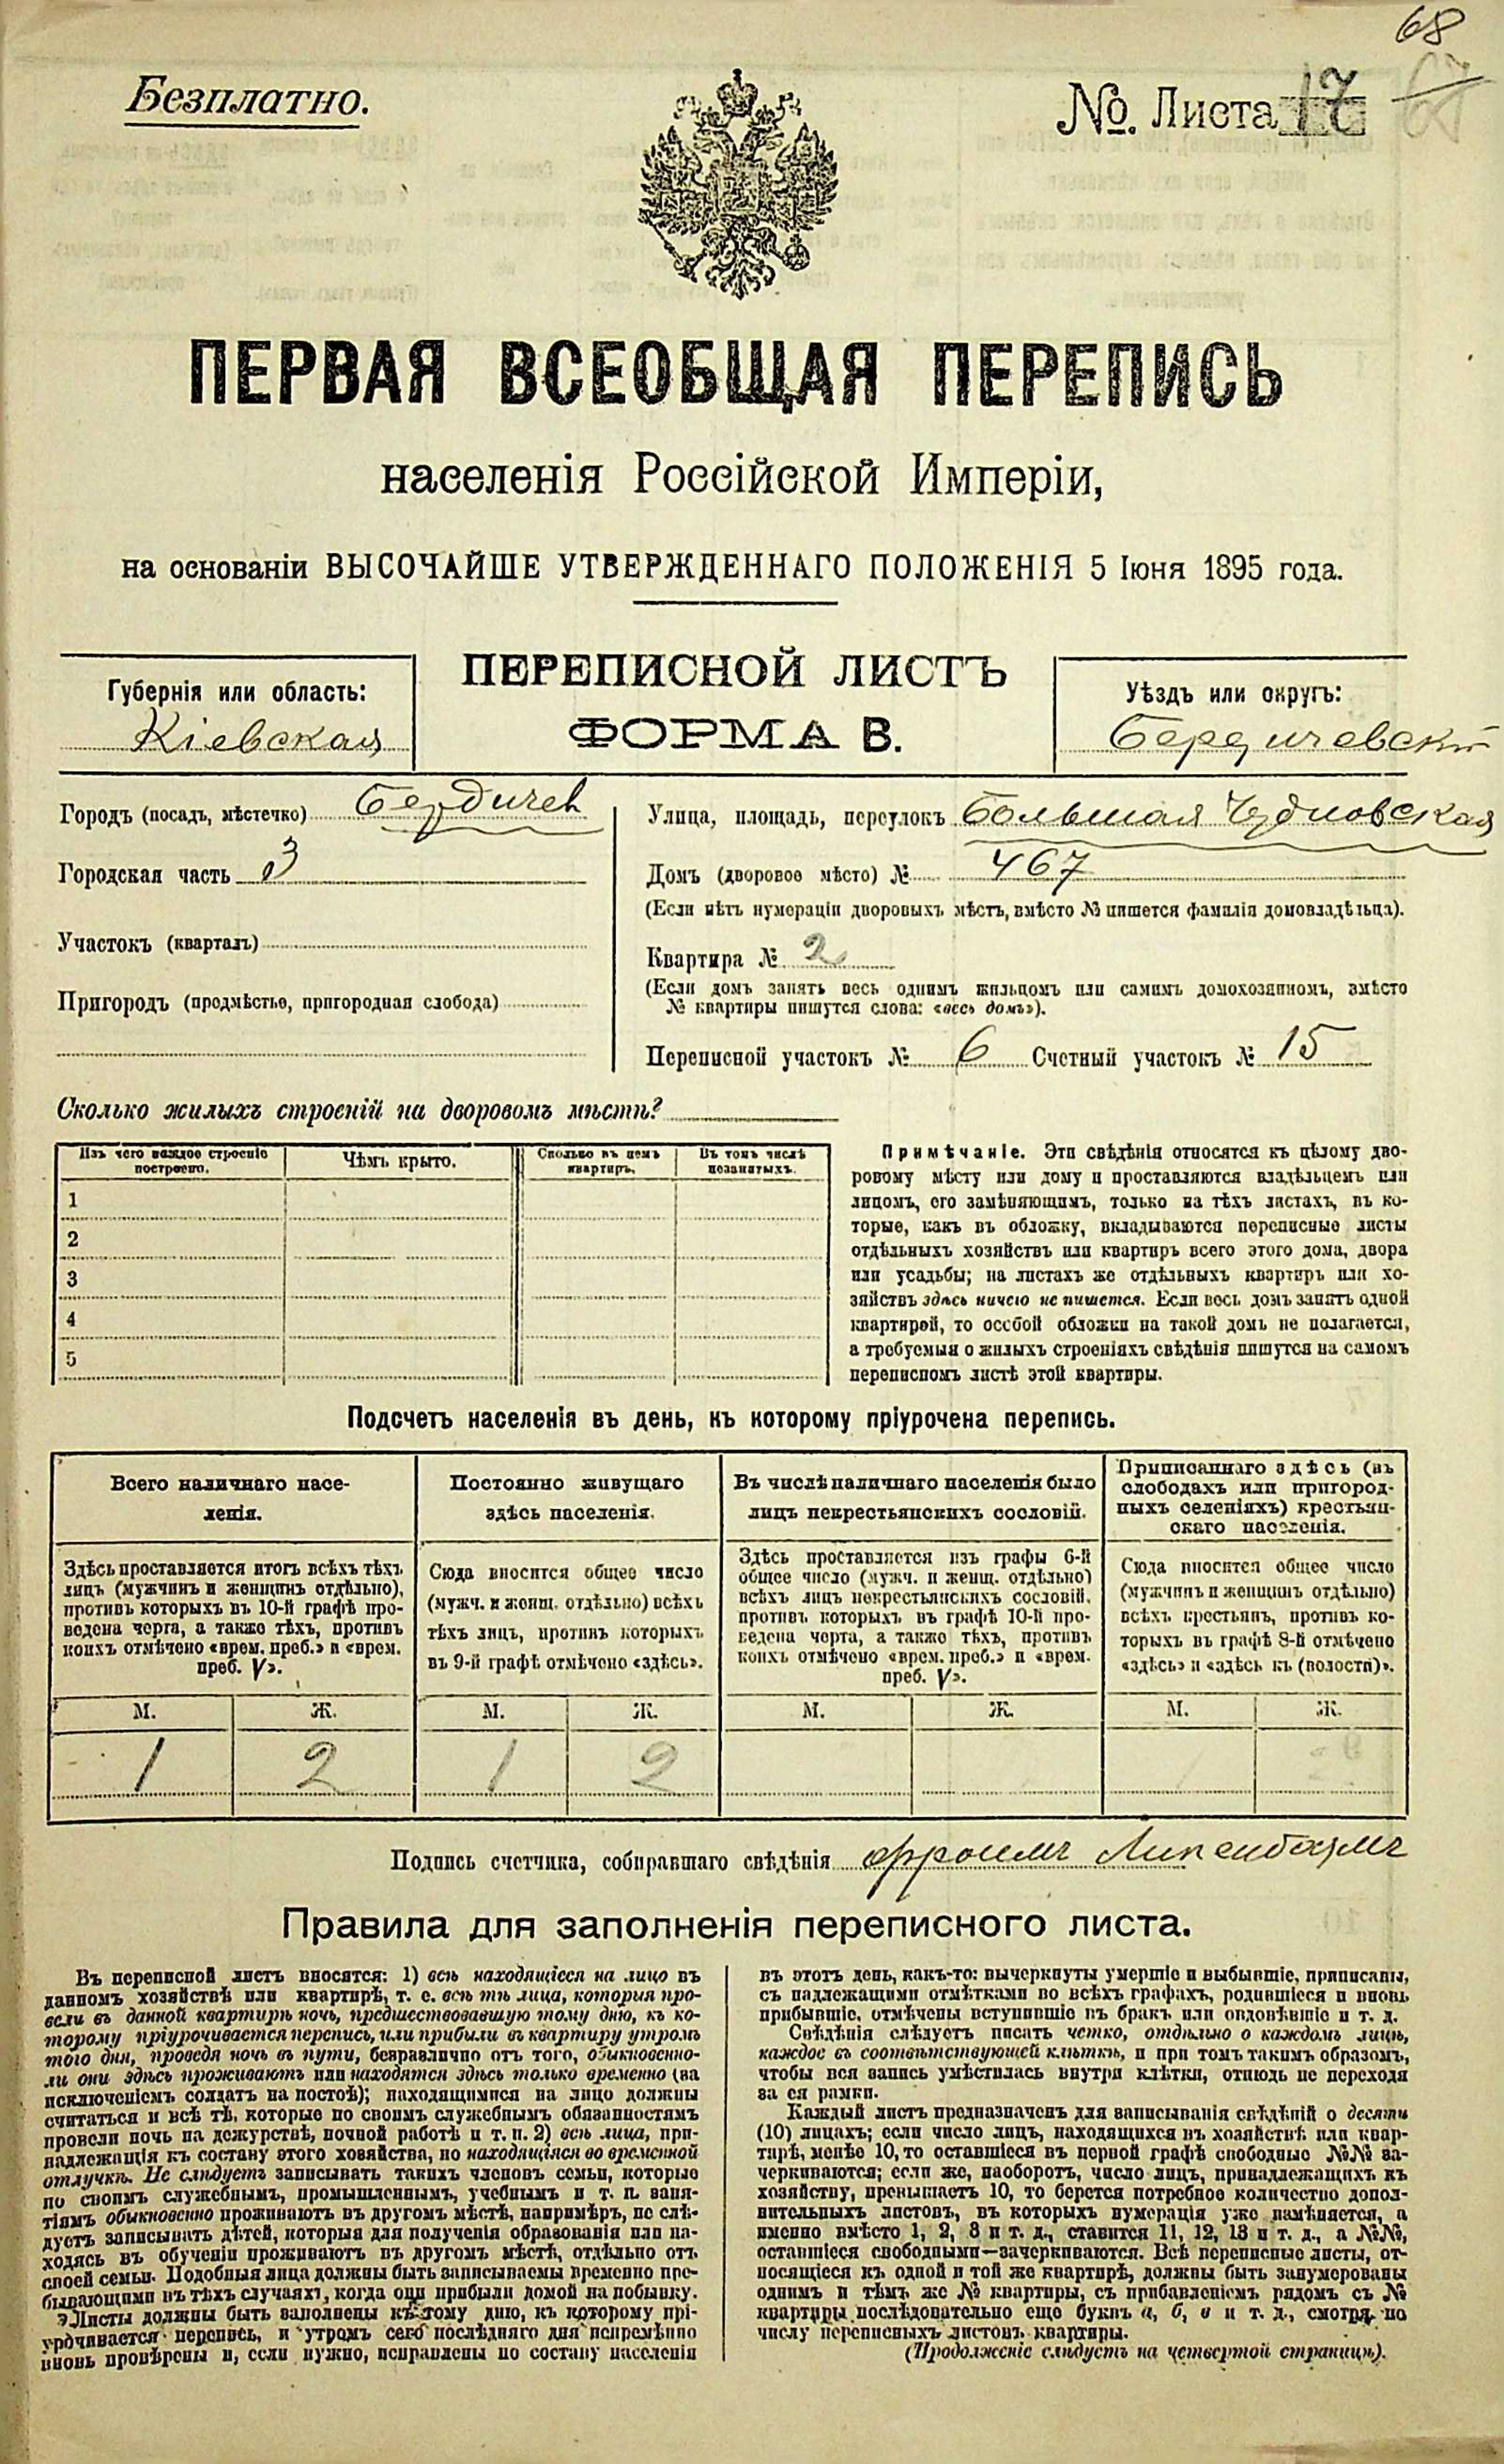 68
Безплатно.
№. Листа 17
ПЕРВАЯ ВСЕОБЩАЯ ПЕРЕПИСЬ
населенія Россійской Имперіи,
на основаніи ВЫСОЧАЙШЕ УТВЕРЖДЕННАГО ПОЛОЖЕНІЯ 5 Іюня 1895 года.
Губернія или область:
Кіевская
ПЕРЕПИСНОЙ ЛИСТЪ
ФОРМА В.
Уѣздъ или округъ:
Бердичевскій
Городъ (посадъ, мѣстечко) Бердичев
Городская часть 3
Участокъ (кварталъ)
Пригородъ (предмѣстье, пригородная слобода)
Улица, площадь, переулокъ Большая Чудновская
Домъ (дворовое мѣсто) № 467
(Если нѣтъ нумераціи дворовыхъ мѣстъ, вмѣсто № пишется фамилія домовладѣльца).
Квартира № 2
(Если домъ занятъ весь однимъ жильцомъ или самимъ домохозяиномъ, вмѣсто
№ квартиры пишутся слова: «весь домъ»).
Переписной участокъ № 6 Счетный участокъ № 15
Сколько жилыхъ строеній на дворовомъ мѣстѣ?
Изъ чего каждое строеніе построено.
Чѣмъ крыто.
Сколько въ немъ квартиръ.
Въ томъ числѣ незанятыхъ.
1
2
3
4
5
Примѣчаніе. Эти свѣдѣнія относятся къ цѣлому дво-
ровому мѣсту или дому и проставляются владѣльцемъ или
лицомъ, его замѣняющимъ, только на тѣхъ листахъ, въ ко-
торые, какъ въ обложку, вкладываются переписные листы
отдѣльныхъ хозяйствъ или квартиръ всего этого дома, двора
или усадьбы; на листахъ же отдѣльныхъ квартиръ или хо-
зяйствъ здѣсь ничего не пишется. Если весь домъ занятъ одной
квартирой, то особой обложки на такой домъ не полагается,
а требуемыя о жилыхъ строеніяхъ свѣдѣнія пишутся на самомъ
переписномъ листѣ этой квартиры.
Подсчетъ населенія въ день, къ которому пріурочена перепись.
Всего наличнаго насе-
ленія.
Здѣсь проставляется итогъ всѣхъ тѣхъ
лицъ (мужчинъ и женщинъ отдѣльно),
противъ которыхъ въ 10-й графѣ про-
ведена черта, а также тѣхъ, противъ
коихъ отмѣчено «врем. преб.» и «врем.
преб. V».
М. Ж.
1 2
Постоянно живущаго
здѣсь населенія.
Сюда вносится общее число
(мужч. и женщ. отдѣльно) всѣхъ
тѣхъ лицъ, противъ которыхъ
въ 9-й графѣ отмѣчено «здѣсь».
М. Ж.
1 2
Въ числѣ наличнаго населенія было
лицъ некрестьянскихъ сословій.
Здѣсь проставляется изъ графы 6-й
общее число (мужч. и женщ. отдѣльно)
всѣхъ лицъ некрестьянскихъ сословій,
противъ которыхъ въ графѣ 10-й про-
ведена черта, а также тѣхъ, противъ
коихъ отмѣчено «врем. преб.» и «врем.
преб. V».
М. Ж.
Приписаннаго здѣсь (въ
слободахъ или пригород-
ныхъ селеніяхъ) крестьян-
скаго населенія.
Сюда вносится общее число
(мужчинъ и женщинъ отдѣльно)
всѣхъ крестьянъ, противъ ко-
торыхъ въ графѣ 8-й отмѣчено
«здѣсь» и «здѣсь къ (волости)».
М. Ж.
Подпись счетчика, собиравшаго свѣдѣнія
Правила для заполненія переписного листа.
Въ переписной листъ вносятся: 1) всѣ находящіеся на лицо въ
данномъ хозяйствѣ или квартирѣ, т. е. всѣ тѣ лица, которыя про-
вели въ данной квартирѣ ночь, предшествовавшую тому дню, къ ко-
торому пріурочивается перепись, или прибыли въ квартиру утромъ
того дня, проведя ночь въ пути, безразлично отъ того, обыкновенно-
ли они здѣсь проживаютъ или находятся здѣсь только временно (за
исключеніемъ солдатъ на постоѣ); находящимися на лицо должны
считаться и всѣ тѣ, которые по своимъ служебнымъ обязанностямъ
провели ночь на дежурствѣ, ночной работѣ и т. п. 2) всѣ лица, при-
надлежащія къ составу этого хозяйства, но находящіяся во временной
отлучкѣ. Не слѣдуетъ записывать такихъ членовъ семьи, которые
по своимъ служебнымъ, промышленнымъ, учебнымъ и т. п. заня-
тіямъ обыкновенно проживаютъ въ другомъ мѣстѣ, напримѣръ, не слѣ-
дуетъ записывать дѣтей, которыя для полученія образованія или на-
ходясь въ обученіи проживаютъ въ другомъ мѣстѣ, отдѣльно отъ
своей семьи. Подобныя лица должны быть записываемы временно пре-
бывающими въ тѣхъ случаяхъ, когда они прибыли домой на побывку.
Листы должны быть заполнены къ тому дню, къ которому прі-
урочивается перепись, и утромъ сего послѣдняго дня непремѣнно
вновь провѣрены и, если нужно, исправлены по составу населенія
въ этотъ день, какъ-то: вычеркнуты умершіе и выбывшіе, приписаны,
съ надлежащими отмѣтками во всѣхъ графахъ, родившіеся и вновь
прибывшіе, отмѣчены вступившіе въ бракъ или овдовѣвшіе и т. д.
Свѣдѣнія слѣдуетъ писать четко, отдѣльно о каждомъ лицѣ,
каждое въ соотвѣтствующей клѣткѣ, и при томъ такимъ образомъ,
чтобы вся запись умѣстилась внутри клѣтки, отнюдь не переходя
за ея рамки.
Каждый листъ предназначенъ для записыванія свѣдѣній о десяти
(10) лицахъ; если число лицъ, находящихся въ хозяйствѣ или квар-
тирѣ, менѣе 10, то оставшіеся въ первой графѣ свободные №№ за-
черкиваются; если же, наоборотъ, число лицъ, принадлежащихъ къ
хозяйству, превышаетъ 10, то берется потребное количество допол-
нительныхъ листовъ, въ которыхъ нумерація уже измѣняется, а
именно вмѣсто 1, 2, 3 и т. д., ставится 11, 12, 13 и т. д., а №№,
оставшіеся свободными—зачеркиваются. Всѣ переписные листы, от-
носящіеся къ одной и той же квартирѣ, должны быть занумерованы
однимъ и тѣмъ же № квартиры, съ прибавленіемъ рядомъ съ №
квартиры послѣдовательно еще буквъ а, б, в и т. д., смотря по
числу переписныхъ листовъ квартиры.
(Продолженіе слѣдуетъ на четвертой страницѣ).